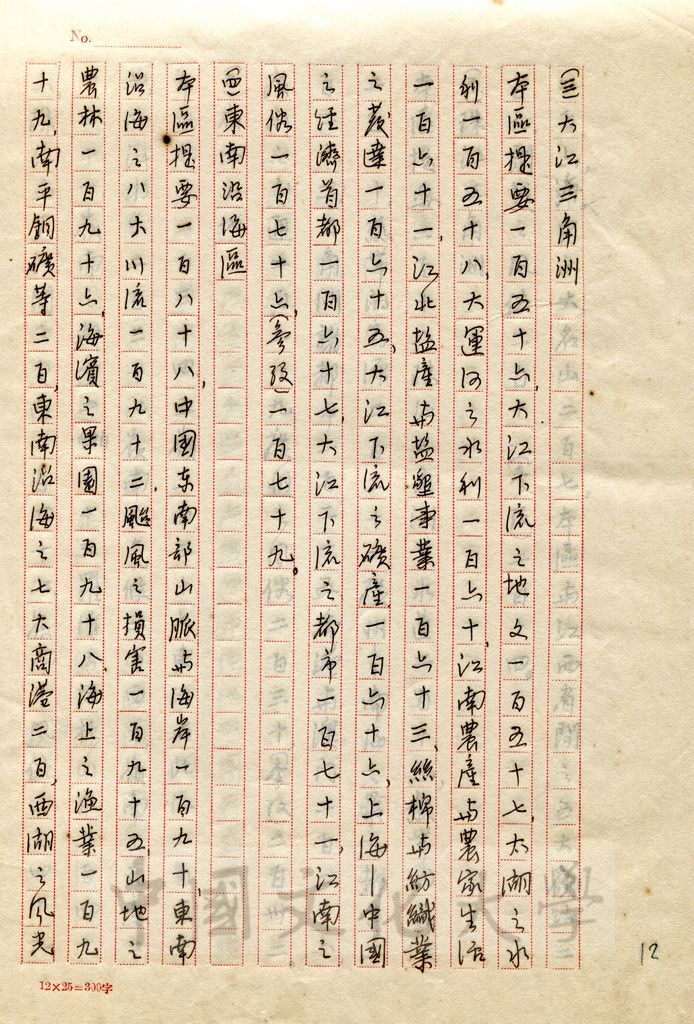 No.
(三)大江三角洲
本區提要一百五十六,大江下流之地文一百五十七,太湖之水
利一百五十八,大運河之水利一百六十,江南農產与農家生活
一百六十一,江北盐產与盐墾事業一百六十三,絲棉与紡織業
之發達一百六十五,大江下流之礦產一百六十六,上海—中國
之經濟首都一百六十七,大江下流之都市一百七十一,江南之
風俗一百七十六,(參攷)一百七十九。
(四)東南沿海區
本區提要一百八十八,中國东南部山脈与海岸一百九十,東南
沿海之八大川流一百九十二,颱風之損害一百九十五山地之
農林一百九十六,海濱之果園一百九十八,海上之漁業一百九
十九,南平銅礦等二百,東南沿海之七大商港二百,西湖之风光
12
12×25=300字
中國文化大學